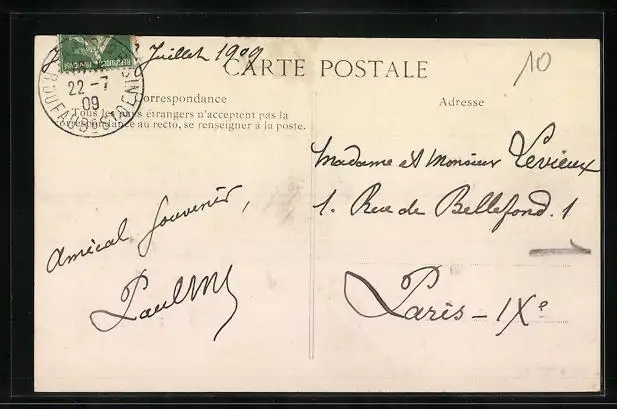 Juillet 1909
10
CARTE POSTALE
22 - 7
09
REPUBLIQUE FRANÇAISE
Correspondance
Tous les pays étrangers n'acceptent pas la
correspondance au recto, se renseigner à la poste.
Adresse
Madame et Monsieur Levieux
1. Rue de Bellefond. 1
Paris - IXe
Amical souvenir,
Paul